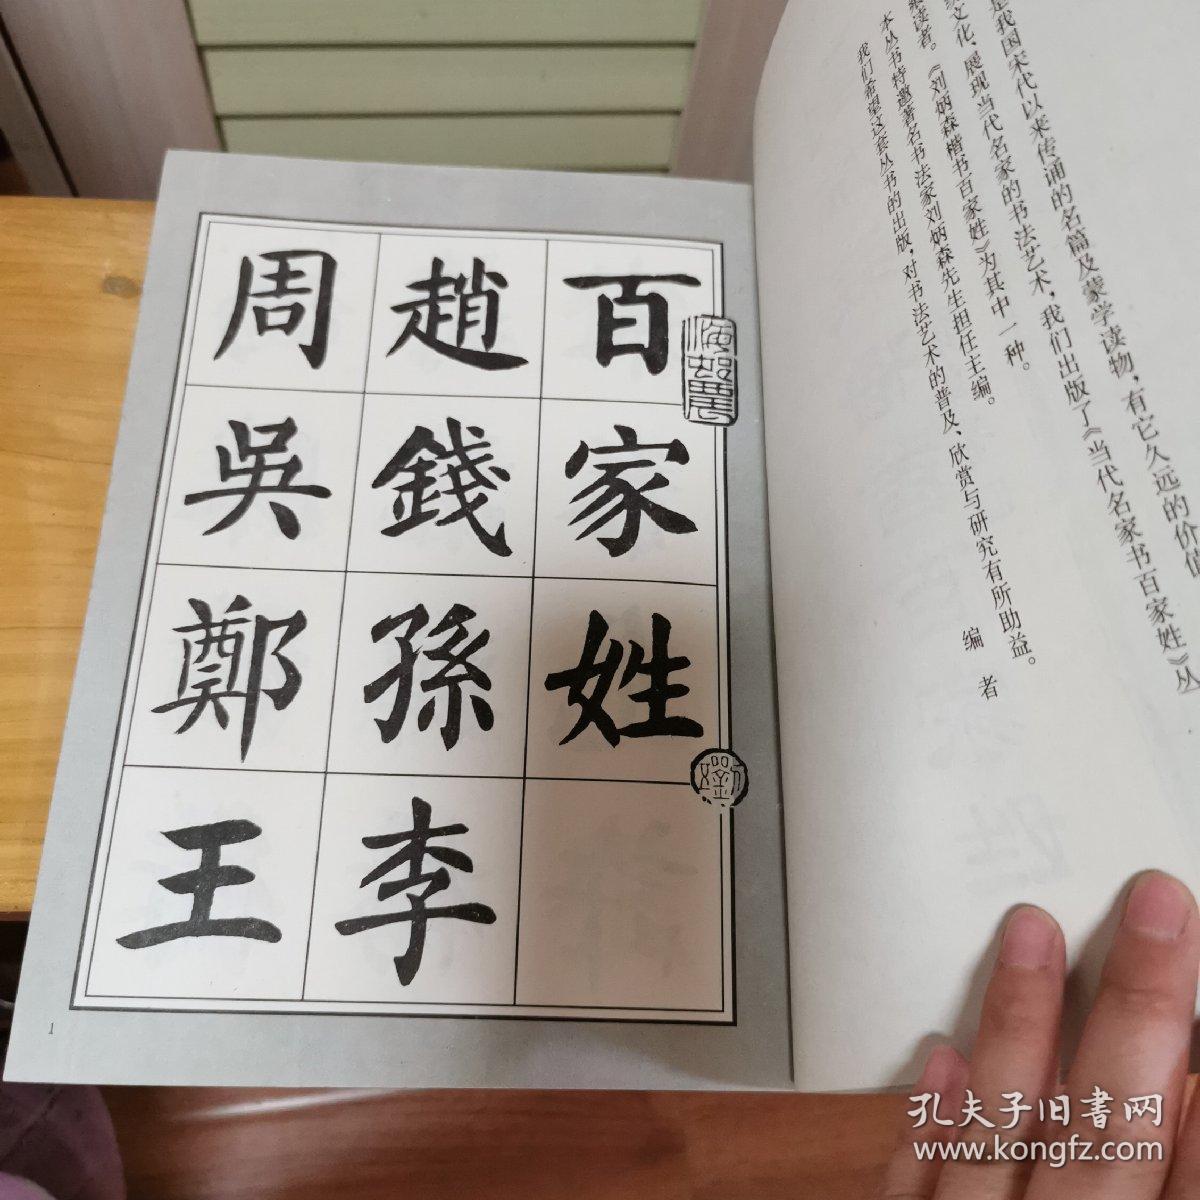 是我国宋代以来传诵的名篇及蒙学读物，有它久远的价值
文化、展现当代名家的书法艺术，我们出版了《当代名家书百家姓》丛
读者。《刘炳森楷书百家姓》为其中一种。
本丛书特邀著名书法家刘炳森先生担任主编。
我们希望这套丛书的出版，对书法艺术的普及、欣赏与研究有所助益。
编者
百家姓
趙錢孫李
周吳鄭王
1
孔夫子旧书网
www.kongfz.com